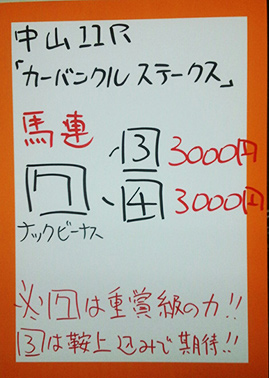 中山11R
「カーバンクルステークス」
馬連
3 3000円
7
4 3000円
ナックビーナス
※7は重賞級の力!!
3は鞍上込みで期待!!